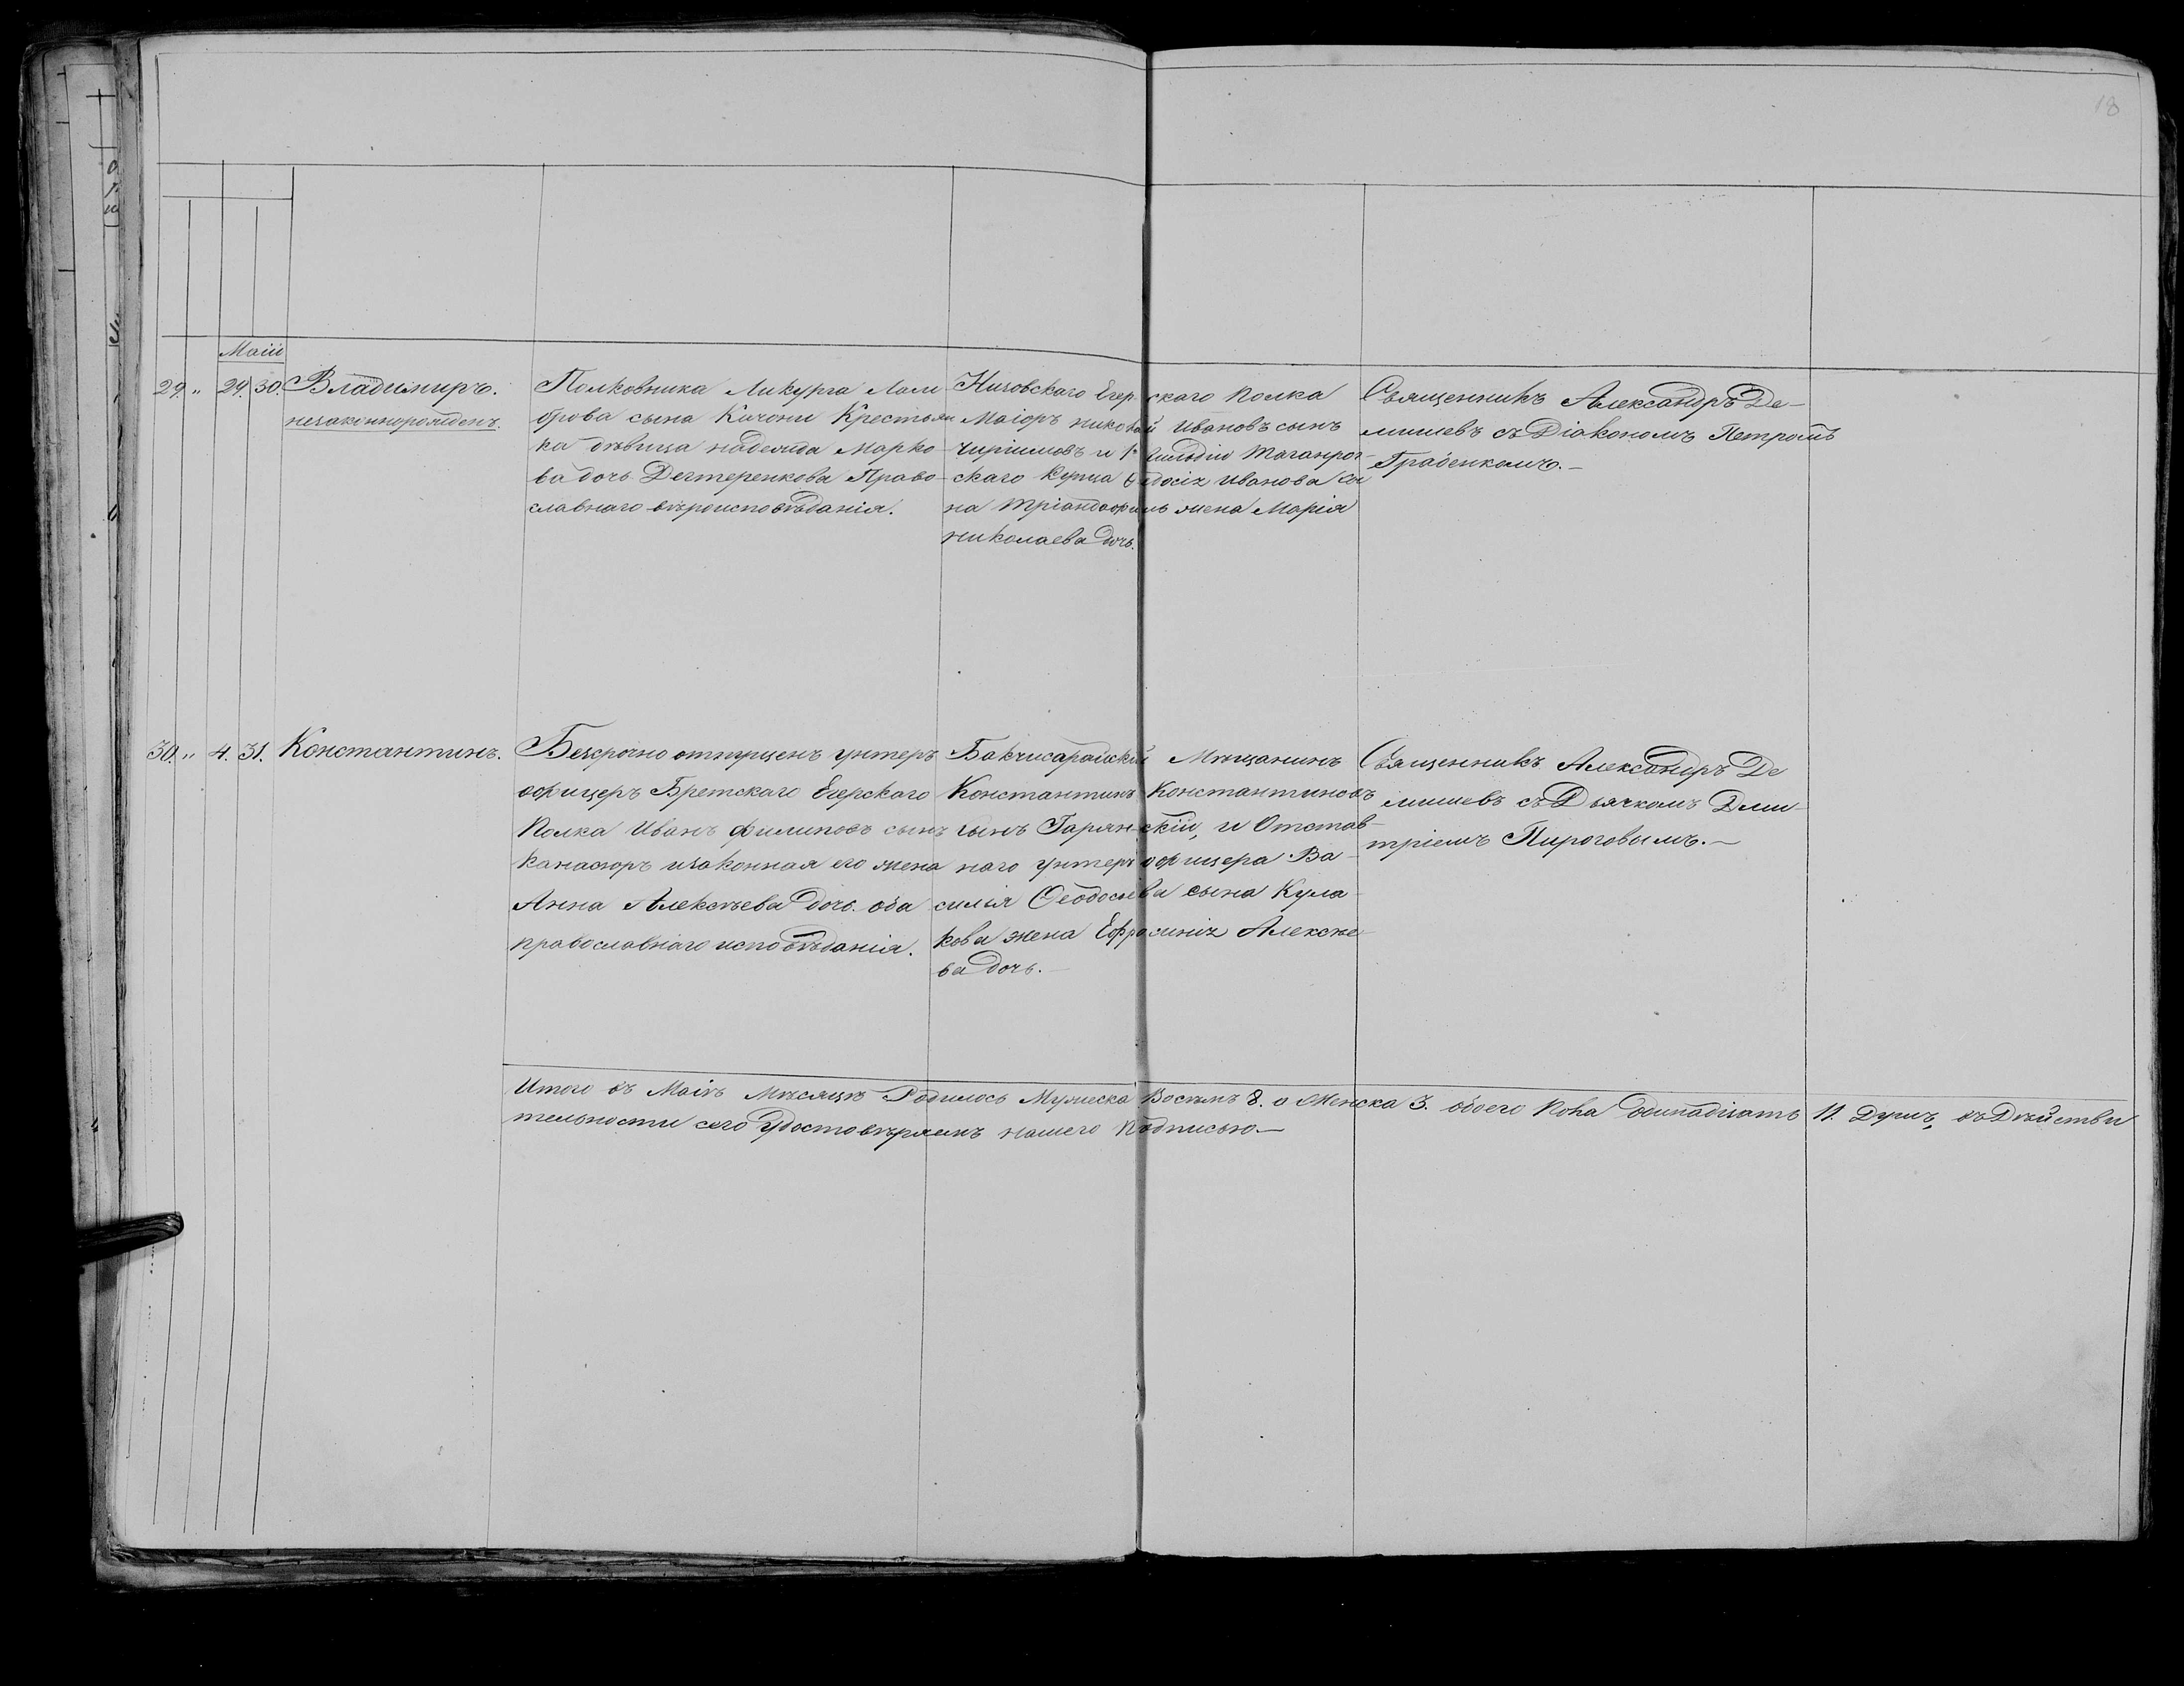 18
Маій
29. " 29. 30. Владимиръ.
незаконнорожденъ.
Полковника Ликурга Лам
брова сына Качони Крестьян
ка дѣвица надежда Марко
ва дочь Дегтеренкова Право
славнаго вѣроисповѣданія.
Низовскаго Егерскаго Полка
Маіоръ николай Ивановъ сынъ
и 1й гильдіи Таганрог
скаго Купца Ѳедосія Иванова
на жена Марія
николаева дочь.
Священникъ Александръ Де-
мишевъ съ Діакономъ Петромъ
Грабенкомъ.-
30. " 4. 31. Константинъ.
Безсрочно отпущенъ унтеръ
офицеръ Бретскаго Егерскаго
Полка Иванъ Филиповъ сынъ
изаконная его жена
Анна Алексѣева дочь. оба
православнаго исповѣданія.
Бакчисарайскій Мѣщанинъ
Константинъ Константиновъ
сынъ Гарянскій, и Отстав-
наго унтеръ офицера Ва-
силья Ѳеодосіева сына Кула-
кова жена Ефросинія Алексѣе-
ва дочь.-
Священникъ Александръ Де
мишевъ съ Дьячкомъ Дми-
тріемъ Пироговымъ.-
Итого въ Маіѣ Мѣсяцѣ Родилось Мужеска Восемъ 8. а Женска 3. обоего Пола одинадцать 11. Душъ, въ Дѣйстви
тельности сего удостовѣряемъ нашего Подписью.-